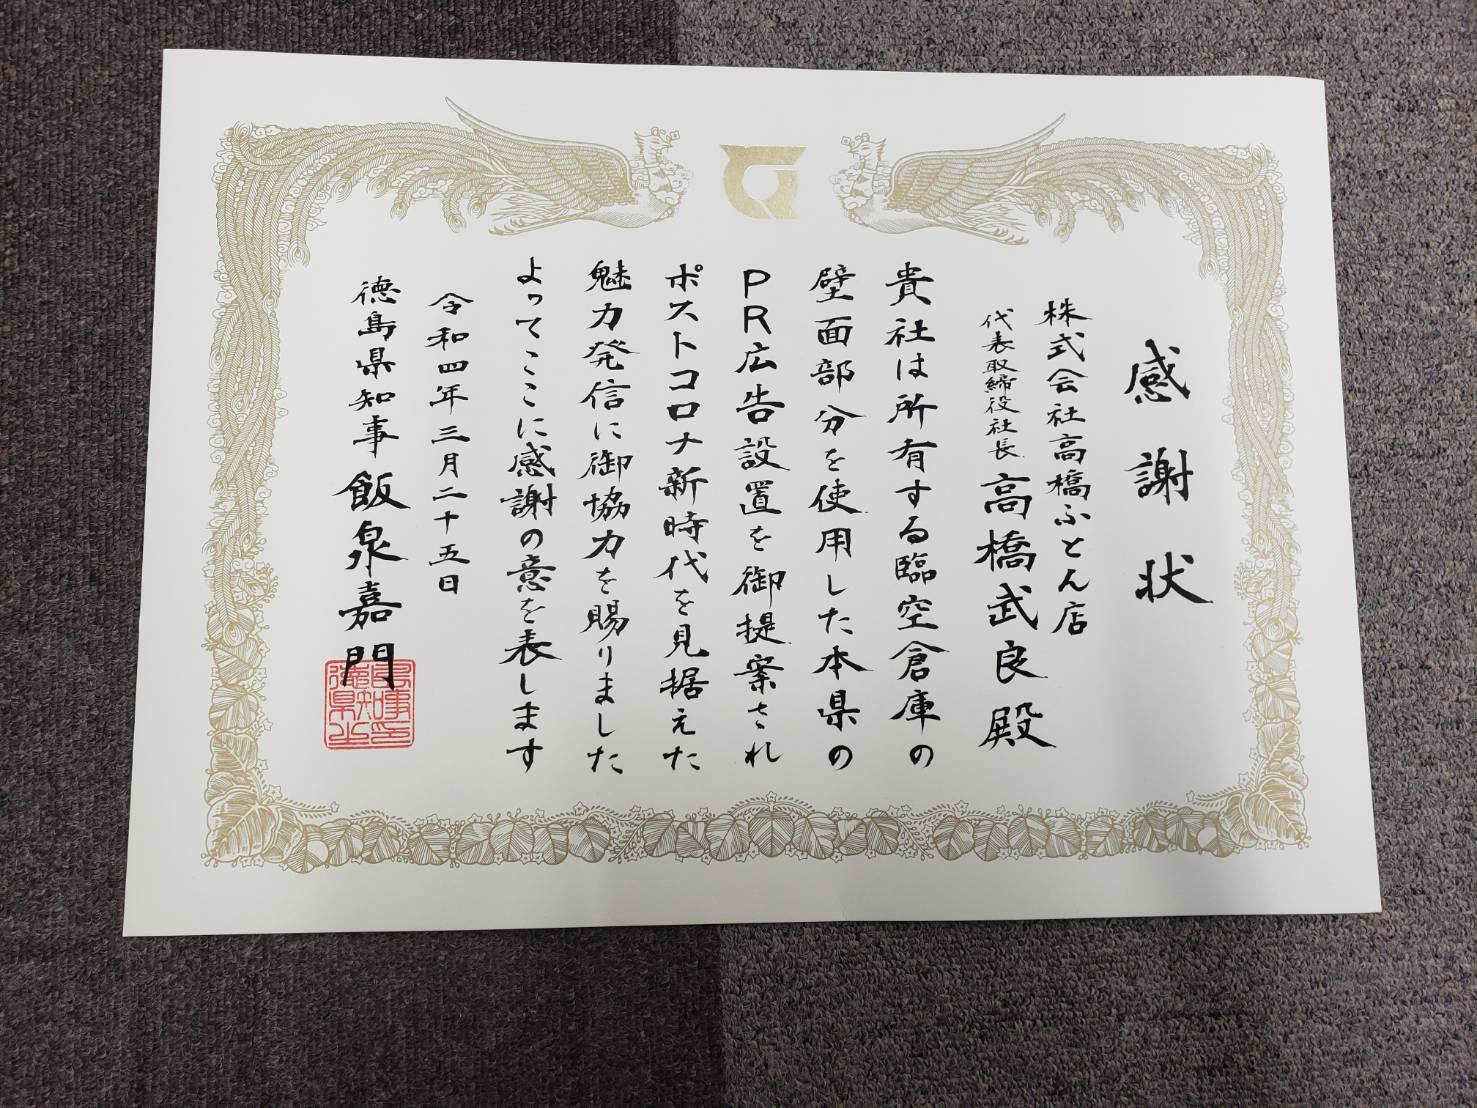 感謝状
株式会社高橋ふとん店
代表取締役社長 高橋武良殿
貴社は所有する臨空倉庫の
壁面部分を使用した本県の
PR広告設置を御提案され
ポストコロナ新時代を見据えた
魅力発信に御協力を賜りました
よってここに感謝の意を表します
令和四年三月二十五日
徳島県知事 飯泉嘉門
徳島県知事之印